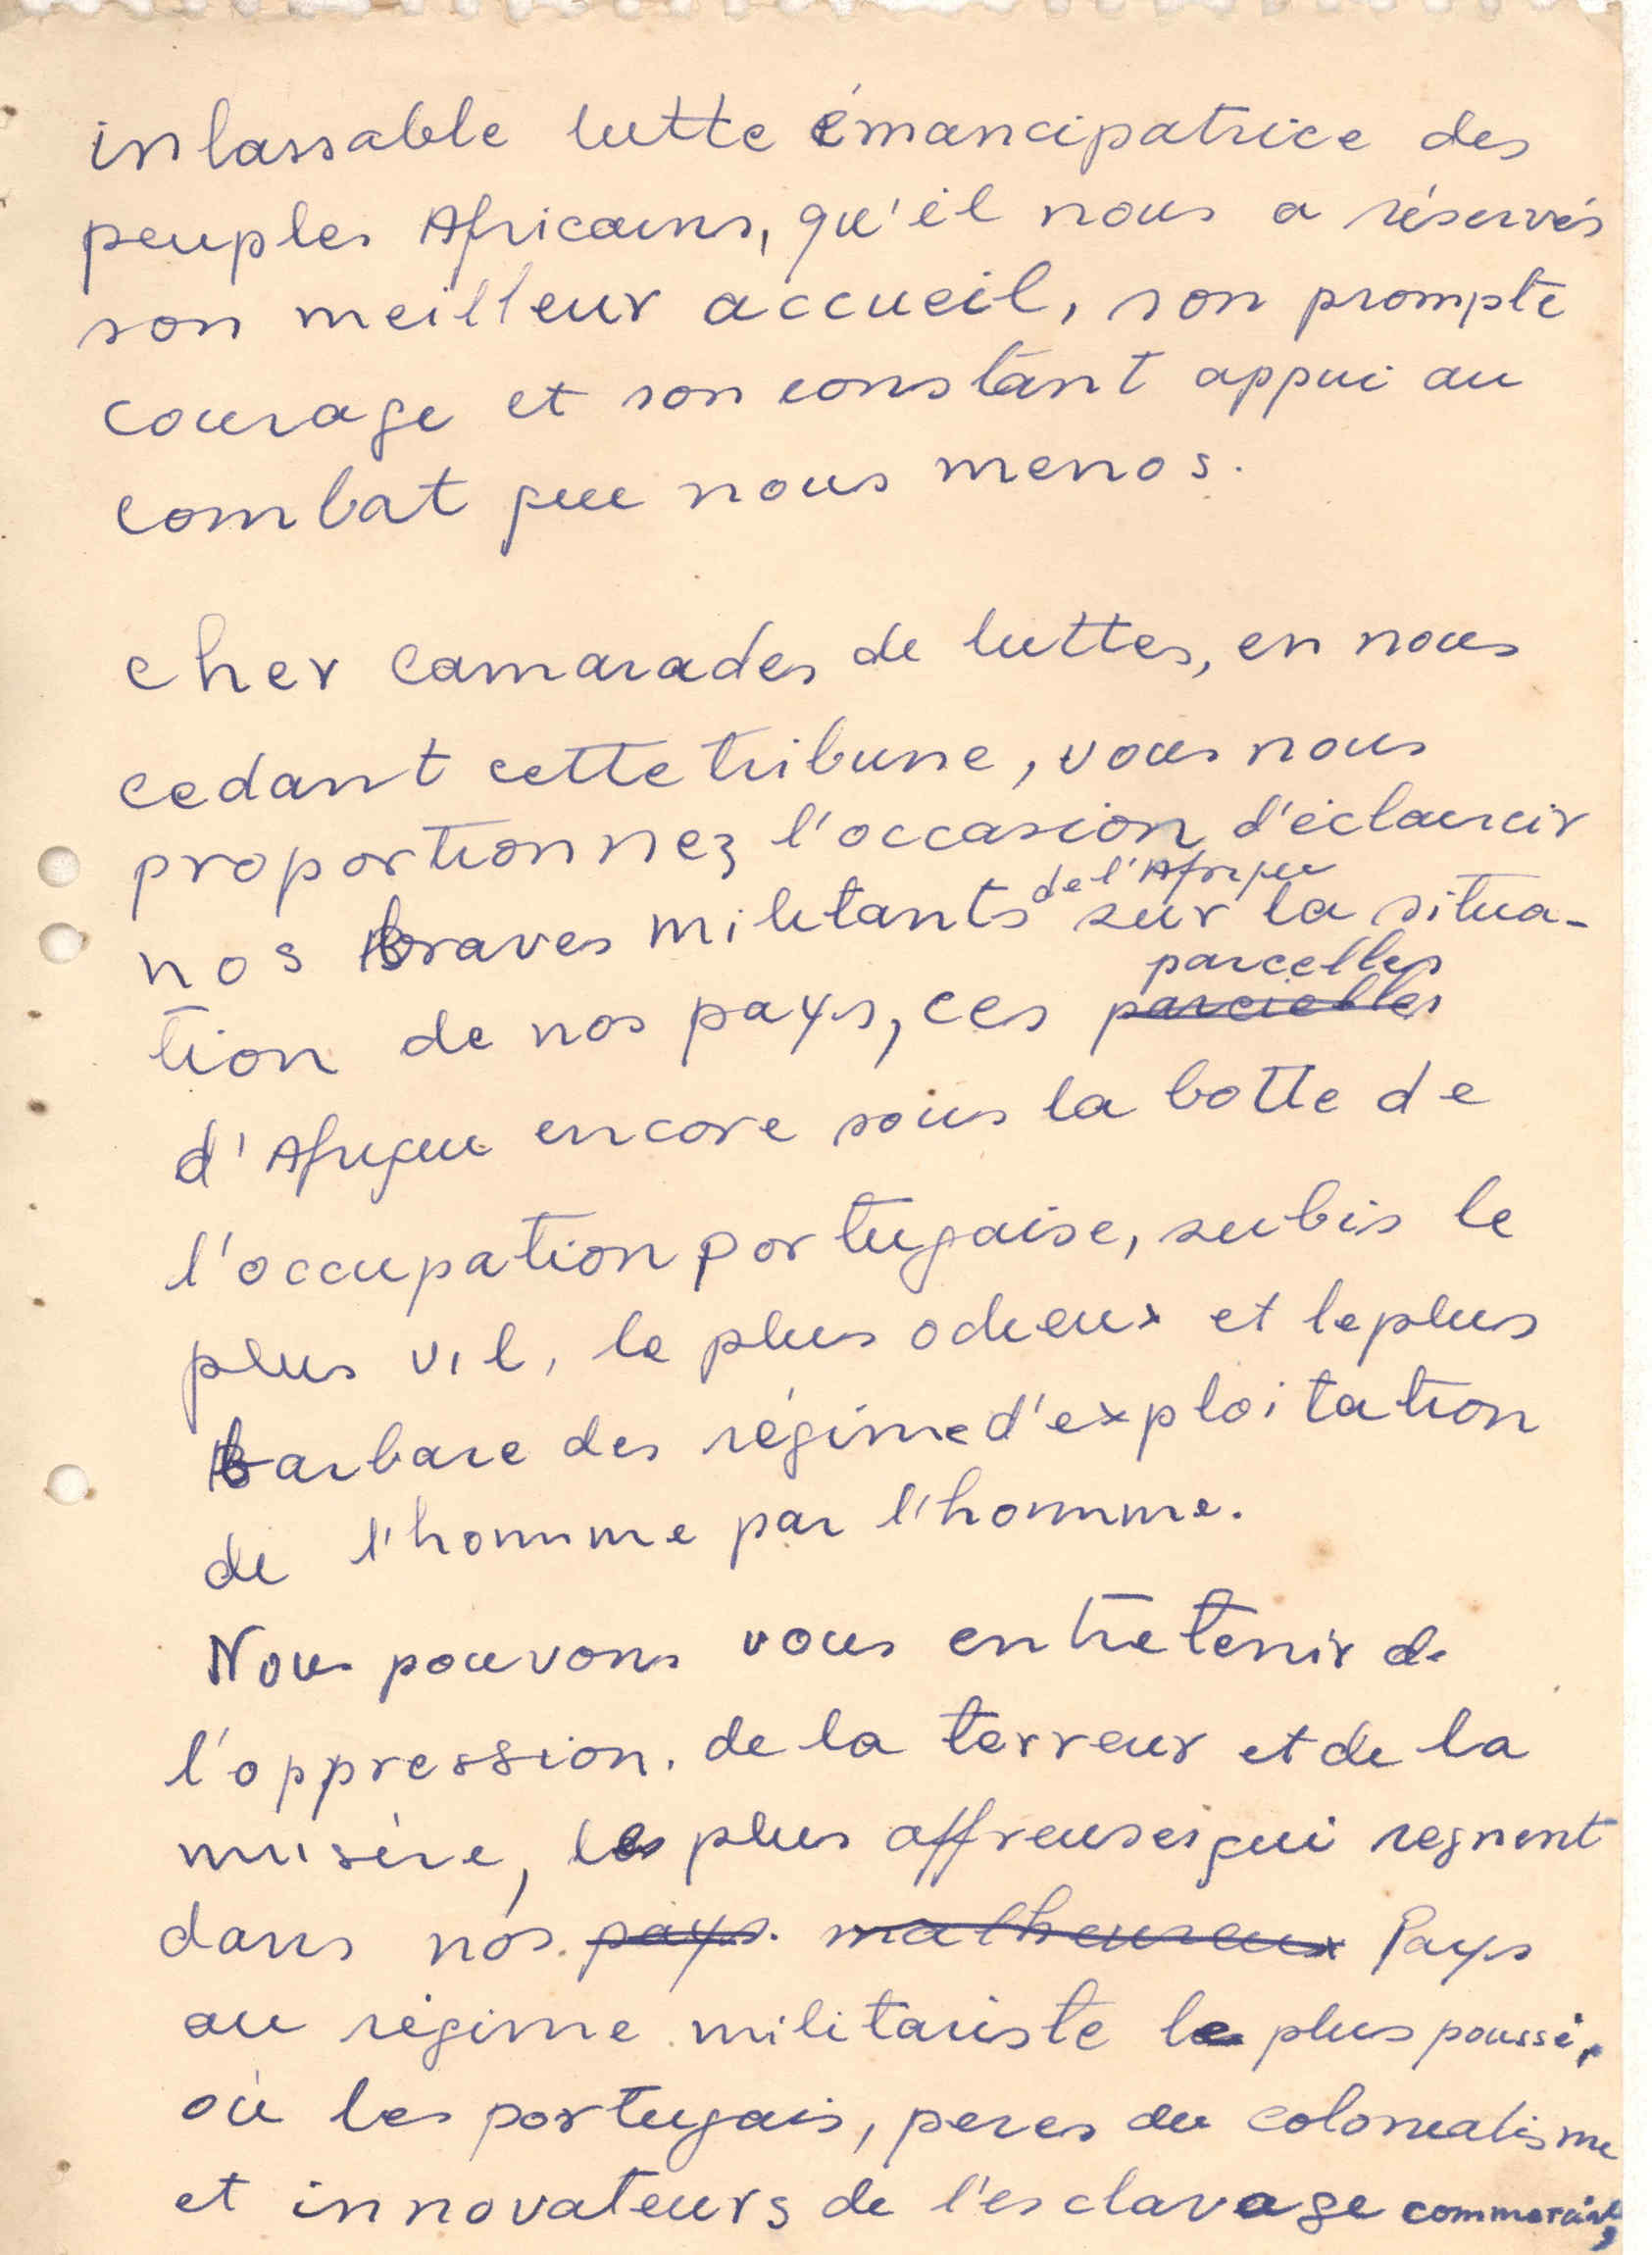 inlassable lutte émancipatrice des
peuples Africains, qu'il nous a réservés
son meilleur accueil, son prompte
courage et son constant appui au
combat que nous menos.
cher camarades de luttes, en nous
cedant cette tribune, vous nous
proportionnez l'occasion d'éclaircir
de l'Afrique
nos braves militants sur la situa-
parcelles
tion de nos pays, ces parcielles
d'Afrique encore sous la botte de
l'occupation portugaise, subis le
plus vil, le plus odieux et le plus
barbare des régime d'exploitation
de l'homme par l'homme.
Nous pouvons vous entretenir de
l'oppression. de la terreur et de la
misère, les plus affreuses qui regnent
dans nos pays. malheureux Pays
au régime militariste le plus poussé,
où les portugais, peres du colonialisme
et innovateurs de l'esclavage commercial,